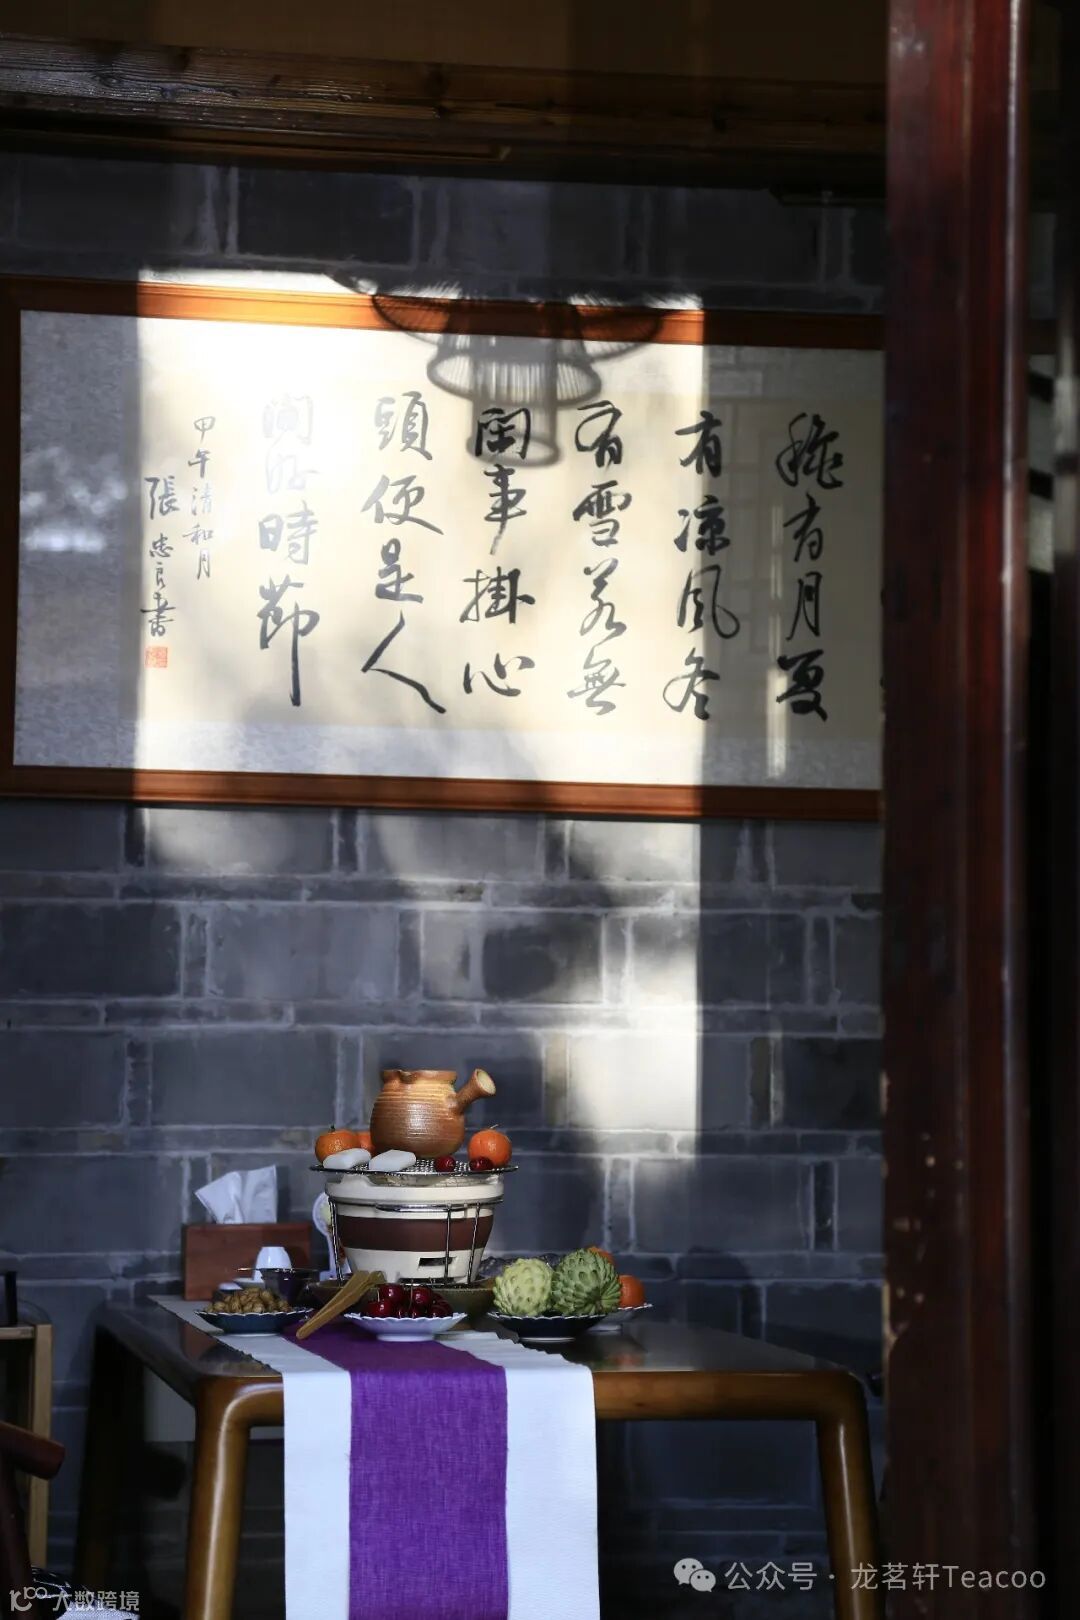 秋有月夏
有凉風冬
有雪若無
閑事掛心
頭便是人
間好時節
甲午清和月
張忠良書
公众号 · 龙茗轩Teacoo
大数跨境